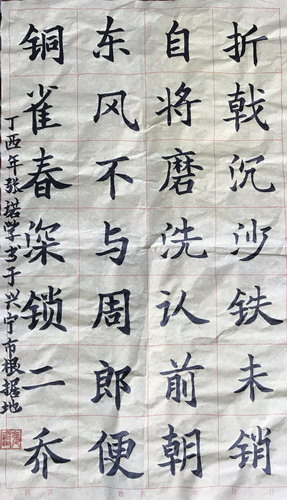 折戟沉沙铁未销
自将磨洗认前朝
东风不与周郎便
铜雀春深锁二乔
丁酉年张喏学书于兴宁市根据地